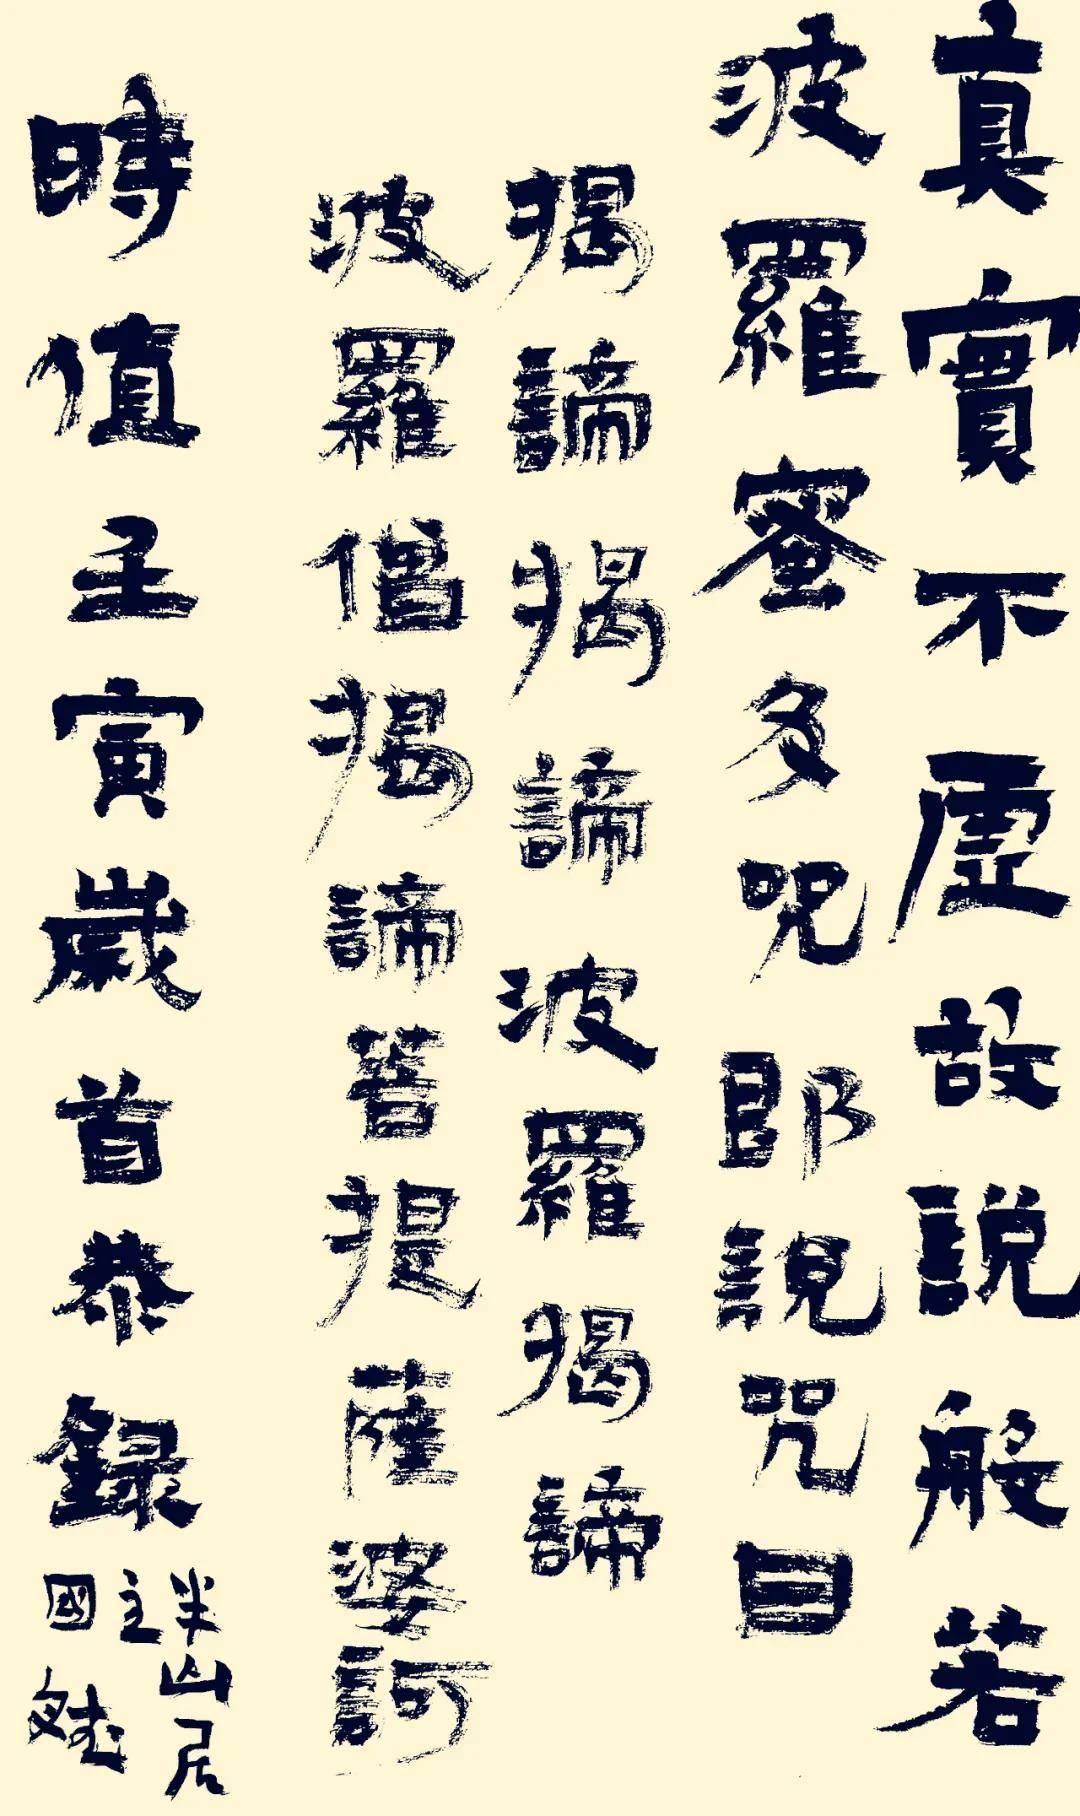 真實不虛故説般若
波羅蜜多呪即説咒曰
揭諦揭諦波羅揭諦
波羅僧揭諦菩提薩婆訶
時值壬寅歲首恭録
半山居
主
國斌